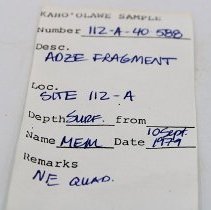 KAHO'OLAWE SAMPLE
Number 112-A-40-588
Desc.
ADZE FRAGMENT
Loc.
SITE 112-A
Depth SURF. from
Name MEM Date 10 Sept. 1979
Remarks
NE QUAD.